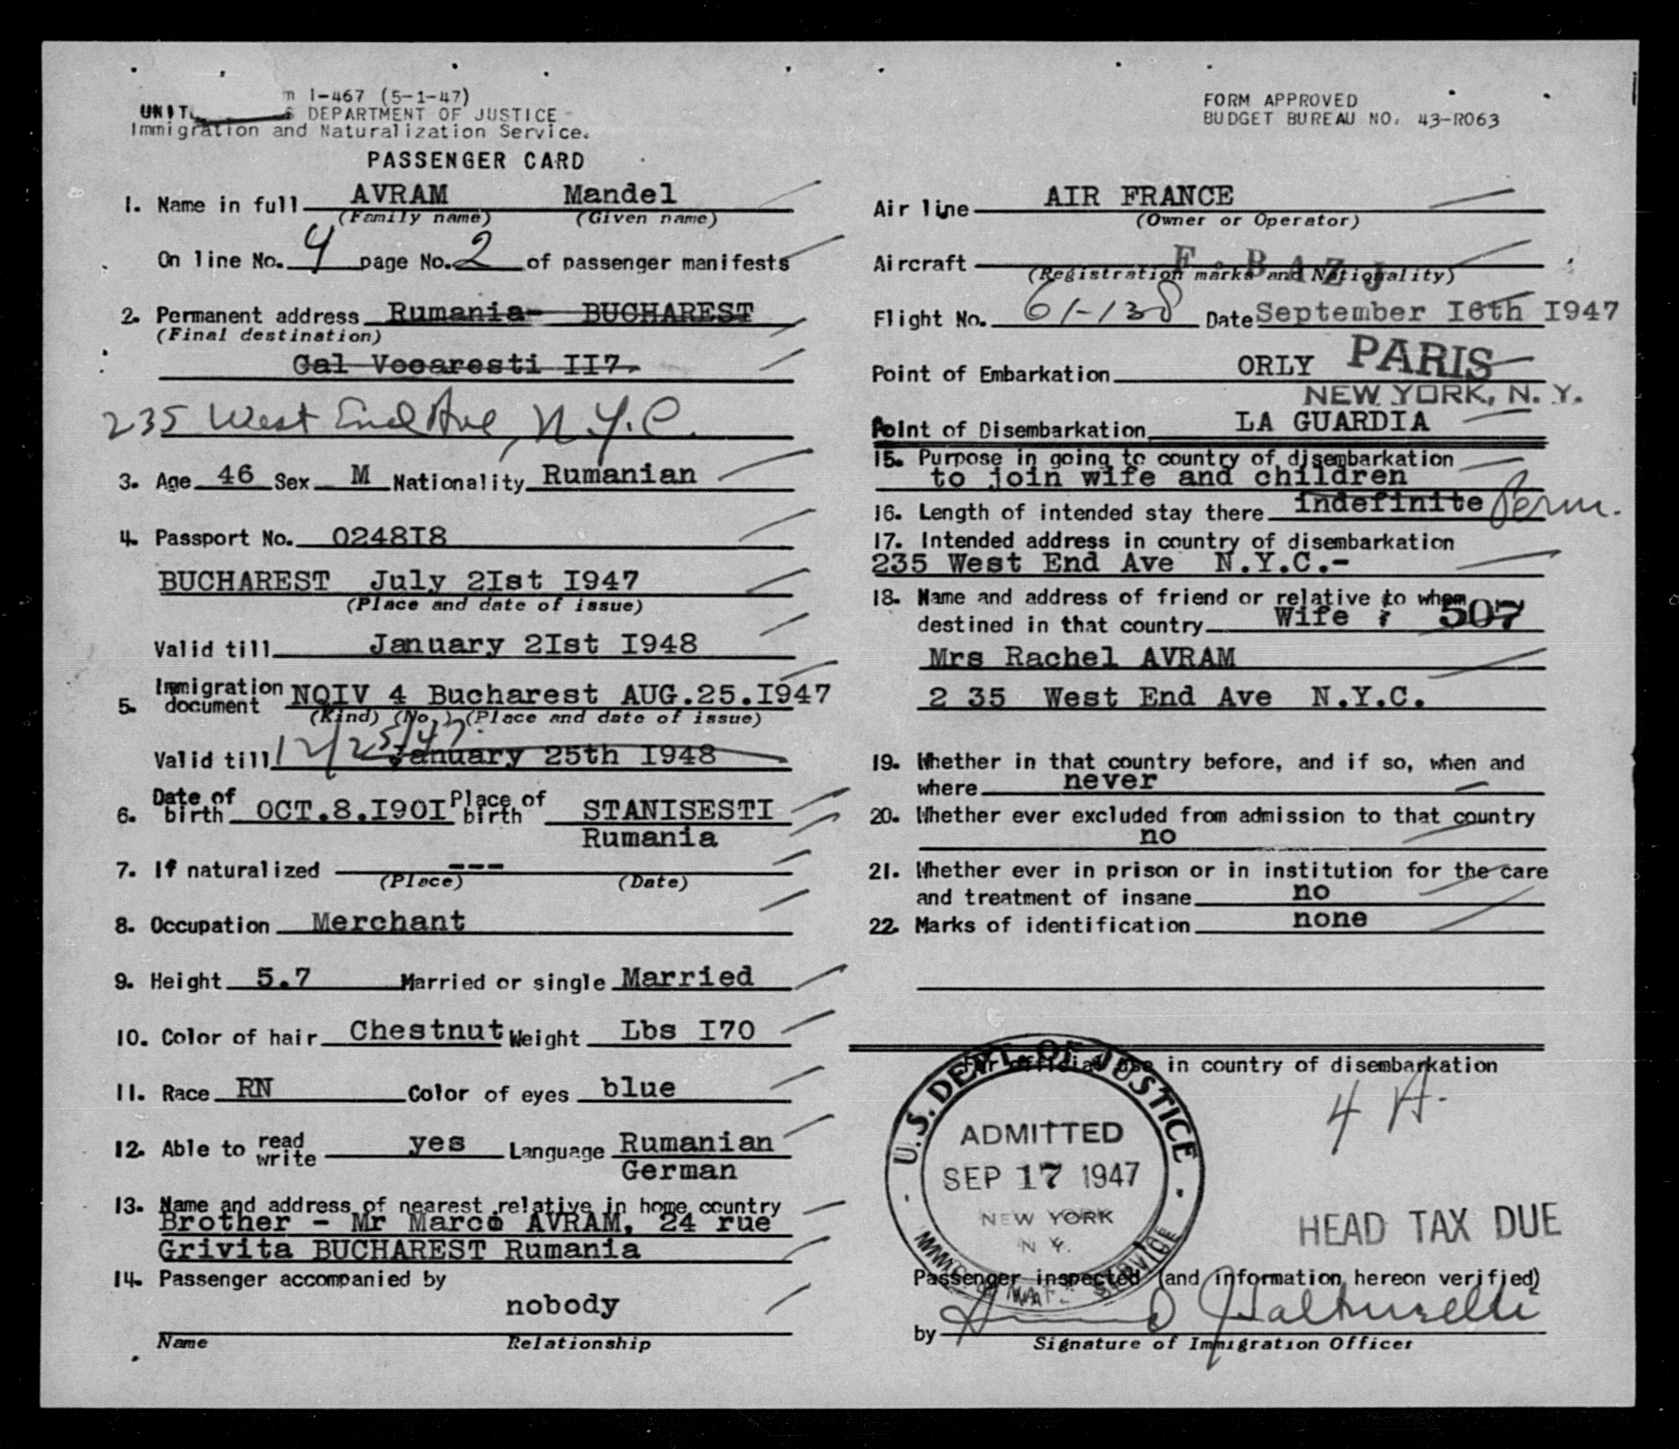 m I-467 (5-1-47)
UNIT S DEPARTMENT OF JUSTICE
Immigration and Naturalization Service.
PASSENGER CARD
1. Name in full AVRAM Mandel
(Family name) (Given name)
On line No. 4 page No. 2 of passenger manifests
2. Permanent address Rumania- BUCHAREST
(Final destination)
Cal Vocaresti II7.
235 West End Ave, N.Y.C.
3. Age 46 Sex M Nationality Rumanian
4. Passport No. 0248I8
BUCHAREST July 2Ist I947
(Place and date of issue)
Valid till January 2Ist I948
5. Immigration document NQIV 4 Bucharest AUG.25.I947
(Kind) (No.) (Place and date of issue)
Valid till 12/25/47. January 25th I948
6. Date of birth OCT.8.I90I Place of birth STANISESTI
Rumania
7. If naturalized ---
(Place) (Date)
8. Occupation Merchant
9. Height 5.7 Married or single Married
10. Color of hair Chestnut Weight Lbs I70
11. Race RN Color of eyes blue
12. Able to read write yes Language Rumanian
German
13. Name and address of nearest relative in home country
Brother - Mr Marco AVRAM, 24 rue
Grivita BUCHAREST Rumania
14. Passenger accompanied by
nobody
Name Relationship
FORM APPROVED
BUDGET BUREAU NO. 43-R063
Air line AIR FRANCE
(Owner or Operator)
Aircraft F. B A Z J
(Registration marks and Nationality)
Flight No. 61-138 Date September I6th I947
Point of Embarkation ORLY PARIS
NEW YORK, N. Y.
Point of Disembarkation LA GUARDIA
15. Purpose in going to country of disembarkation
to join wife and children
16. Length of intended stay there indefinite Perm.
17. Intended address in country of disembarkation
235 West End Ave N.Y.C.-
18. Name and address of friend or relative to whom
destined in that country Wife : 507
Mrs Rachel AVRAM
2 35 West End Ave N.Y.C.
19. Whether in that country before, and if so, when and
where never
20. Whether ever excluded from admission to that country
no
21. Whether ever in prison or in institution for the care
and treatment of insane no
22. Marks of identification none
For official use in country of disembarkation
4 A.
U.S. DEPT. OF JUSTICE
ADMITTED
SEP 17 1947
NEW YORK
N Y.
SERVICE
HEAD TAX DUE
Passenger inspected (and information hereon verified)
by
Signature of Immigration Officer